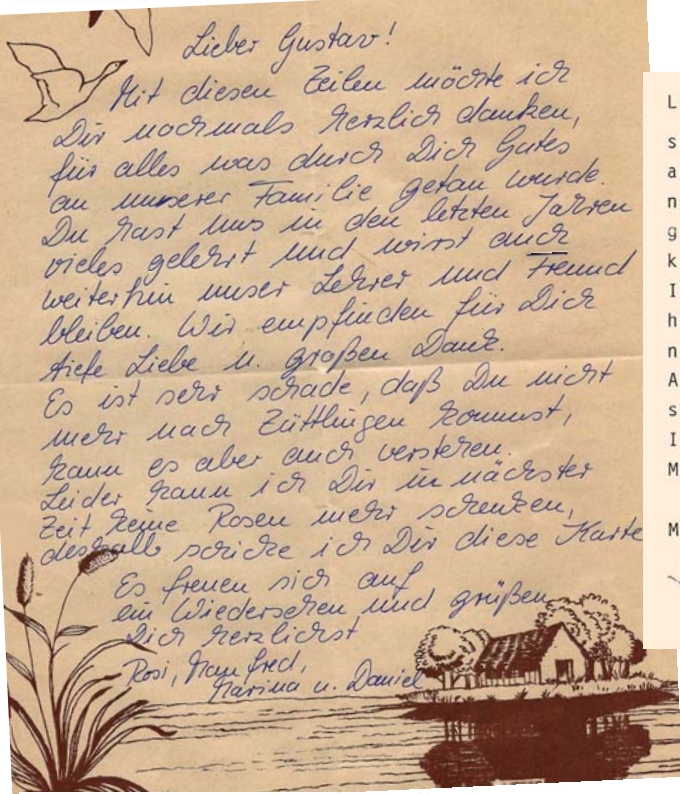 Lieber Gustav!
Mit diesen Zeilen möchte ich
Dir nochmals herzlich danken,
für alles was durch Dich Gutes
an unserer Familie getan wurde.
Du hast uns in den letzten Jahren
vieles gelehrt und wirst auch
weiterhin unser Lehrer und Freund
bleiben. Wir empfinden für Dich
tiefe Liebe u. großen Dank.
Es ist sehr schade, daß Du nicht
mehr nach Züttlingen kommst,
kann es aber auch verstehen.
Leider kann ich Dir in nächster
Zeit keine Rosen mehr schenken,
deshalb schicke ich Dir diese Karte
Es freuen sich auf
ein Wiedersehen und grüßen
Dich herzlichst
Rosi, Manfred,
Marina u. Daniel
L
s
a
n
g
k
I
h
n
A
s
I
M
M